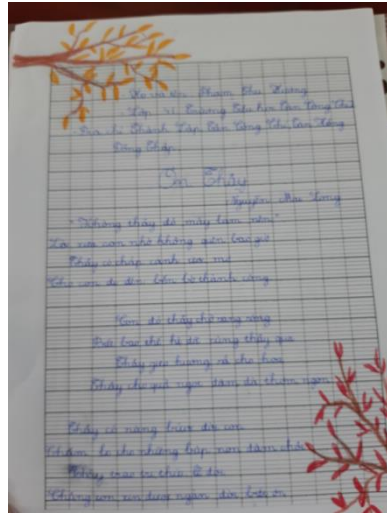 Họ và tên: Phạm Thu Hương
Lớp Trường Tiểu học Tân Công Chí
Địa chỉ: Thành Lập, Tân Công Chí, Tân Hồng
Đồng Tháp.
Ơn Thầy
Nguyễn
"Không thầy đố mày làm nên"
Lời xưa con nhớ không quên bao giờ
Thầy cô chắp cánh ước mơ
Cho con đi đến bến bờ thành công
Con đò thầy chở sang sông
Đưa bao thế hệ đã cùng thầy qua
Thầy gieo hương cho hoa
Thầy cho quả ngọt đậm đà thơm ngon
Thầy cô nâng bước đời con
Chăm lo cho những búp non đâm chồi
Thầy trao tri thức
Chúng con xin điểm ngàn đời biết ơn